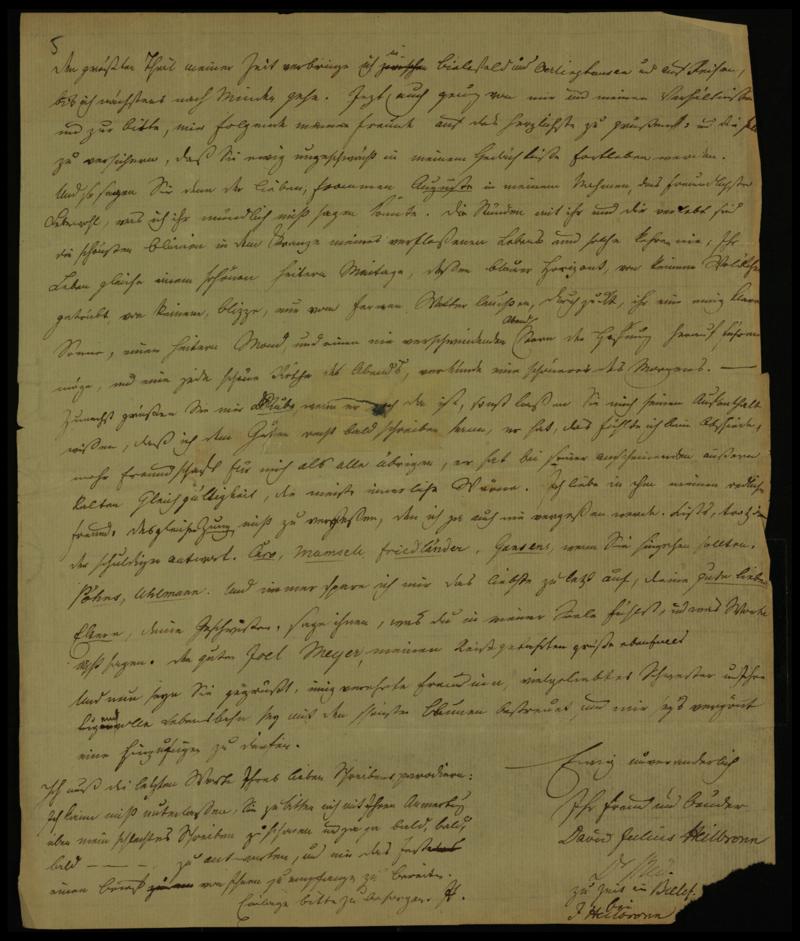 5
Den größten Theil meiner Zeit verbringe ich in Bielefeld und Oerlinghausen und auf Reisen,
bis ich nächstens nach Minden gehe. Jezt auch genug von mir und meinen Verhältnissen
und zur Bitte, mir folgende meiner Freunde auf das herzlichste zu grüßen und sie
zu versichern, daß Sie ewig ungeschwächt in meinem Gedächtniße fortleben werden.
Und so sagen Sie denn der lieben, frommen Auguste in meinem Nahmen, das freundlichste
Lebewohl, was ich ihr mündlich nicht sagen konnte. Die Stunden mit ihr und die verlebt sind
die schönsten Blumen in dem Kranze meines verfloßenen Lebens und solche kehren nie, Ihr
Leben gleiche einem schönen heitern Maitage, deßen blauer Horizont, von keinem
getrübt von keinem, Blizze, nur vom fernen Wetterleuchten, durchzuckt, ihr eine ewig klare
Abend
Sonne, einen heitern Mond, und einen nie verschwindenden Stern der Hofnung herauf führen
möge, und eine jede schöne Röthe des Abends, verkünde eine schönere des Morgens. —
Zunächst grüßen Sie mir wenn er noch da ist, sonst laßen Sie mich seinen Aufenthalt
wißen, daß ich dem Guten recht bald schreiben kann, er hat, das fühlte ich beim Abschiede,
mehr Freundschaft für mich als alle übrigen, er hat bei seiner anscheinenden äußern
kalten Gleichgültigkeit, die meiste innerliche Wärme. Ich liebe in ihm meinen redlichen
Freund. Desgleichen Zunz nicht zu vergeßen, den ich ja auch nie vergeßen werde. trotz
der schuldigen Antwort. Mamsell Friedländer, Gansens, wenn Sie hingehen sollten.
Uhlmann. Und immer spare ich mir das liebste zuletzt auf, deine guten lieben
Eltern, deine Geschwister, sage ihnen, was du in meiner Seele fühlst, und was Worte
nicht sagen. Den guten Joel Meyer, meinen Reisegefährten grüße ebenfalls
Und nun seyn Sie gegrüßt, innig verehrte Freundinn, vielgeliebtes Schwester und Ihre
Lebensbahn sey mit den schönsten Blumen bestreuet, und mir sey's vergönt
eine hinzufügen zu dürfen.
Ewig unveränderlich
Ihr Freund und Bruder
David Julius Heilbronn
zu Zeit in Bielef.
bei
J Heilbronn
Ich muß die letzten Worte Ihres lieben Schreibens parodiren:
Ich kann nicht unterlaßen, Sie zu bitten mich mit Ihren Anmerkung
über mein schlechtes Schreiben zu schonen und ja ja bald, bald,
bald — — —, zu antworten, und mir das Fest
einen Brief von Ihnen zu empfangen zu bereiten.
Einlage bitte zu besorgen. H.